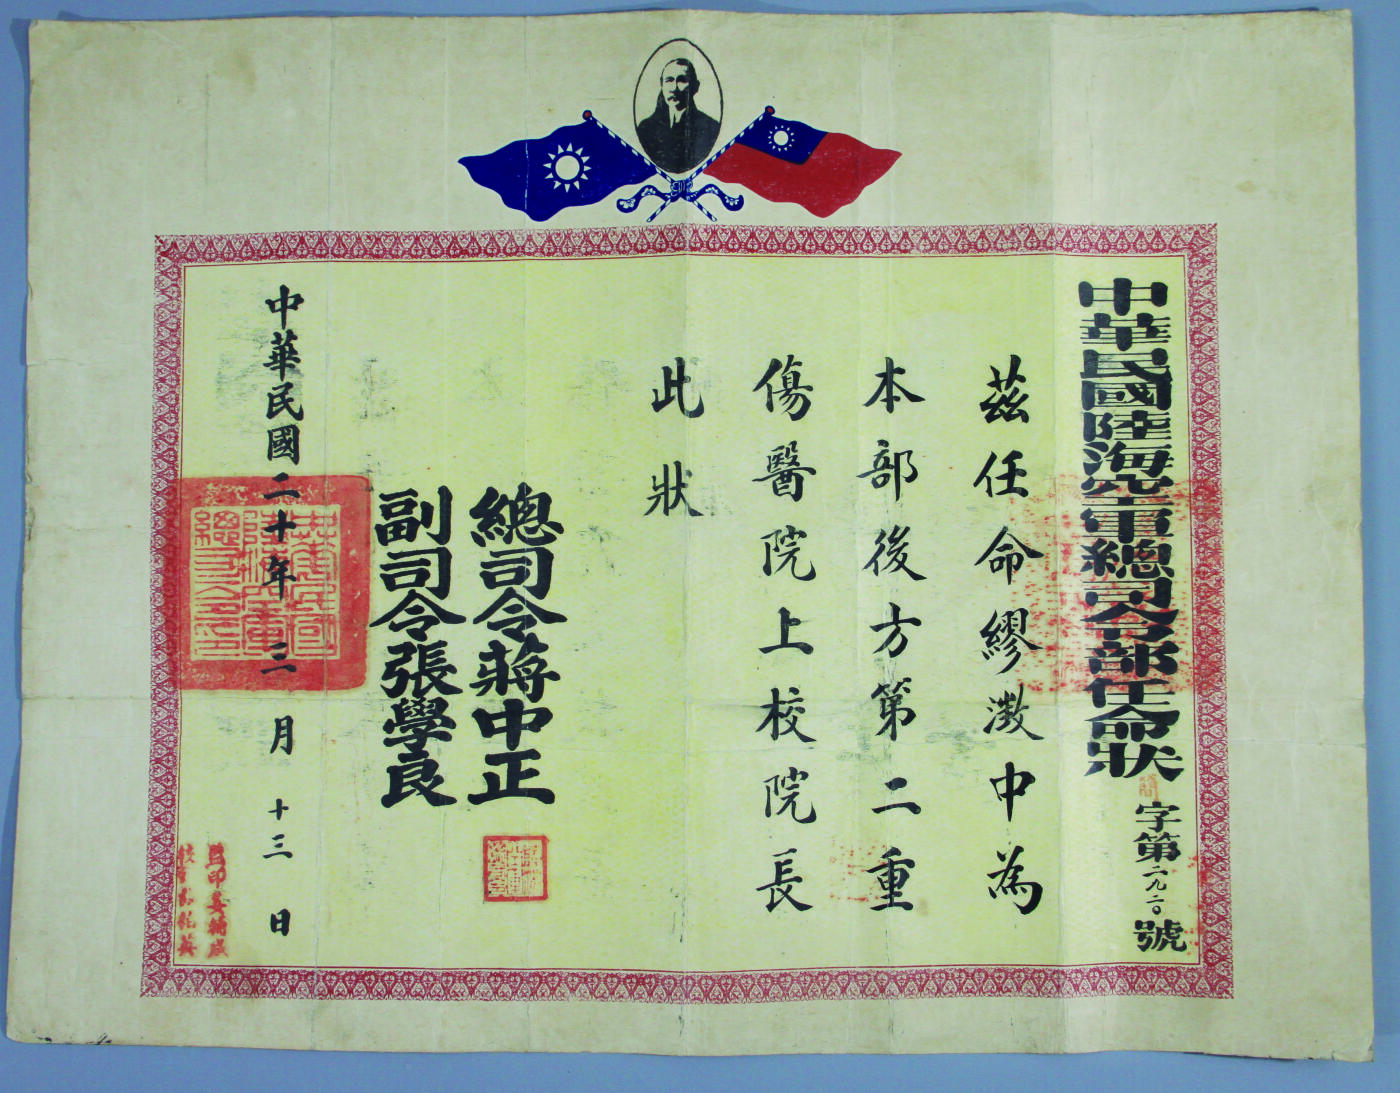 中華民國陸海空軍總司令部任命狀
簡字第二九二〇號
茲任命繆澂中為
本部後方第二重
傷醫院上校院長
此狀
總司令蔣中正
副司令張學良
中華民國二十年三月十三日
監印姜輔成